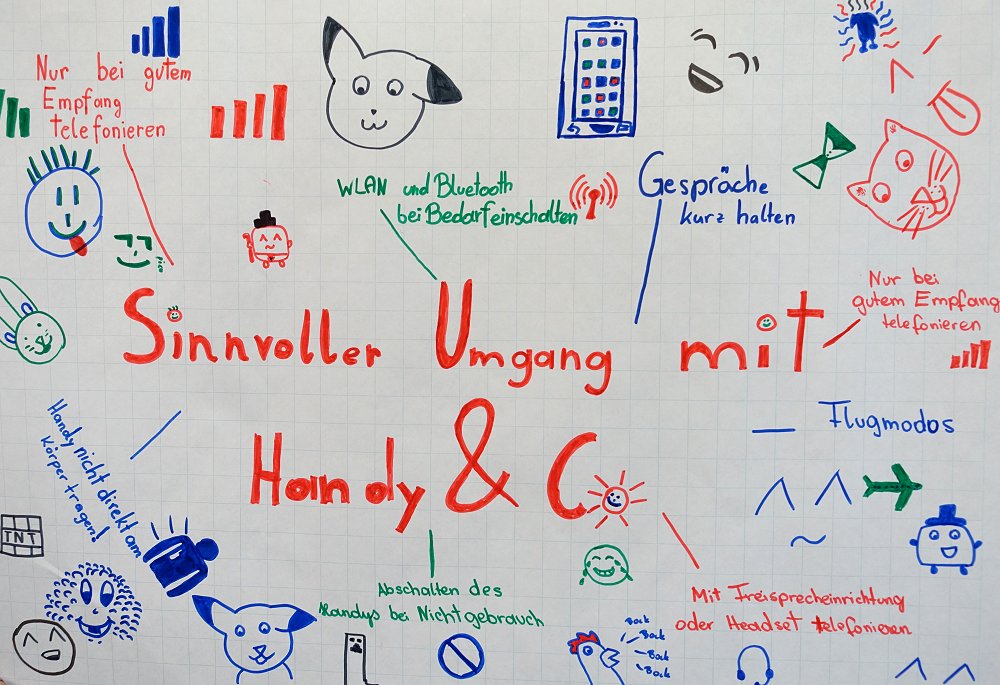 Nur bei gutem
Empfang
telefonieren
WLAN und Bluetooth
bei Bedarf einschalten
Gespräche
kurz halten
Nur bei
gutem Empfang
telefonieren
Sinnvoller Umgang mit
Handy & Co
Handy nicht direkt am
Körper tragen!
Flugmodos
TNT
Abschalten des
Handys bei Nichtgebrauch
Mit Freisprecheinrichtung
oder Headset telefonieren
Bock
Bock
Bock
Bock